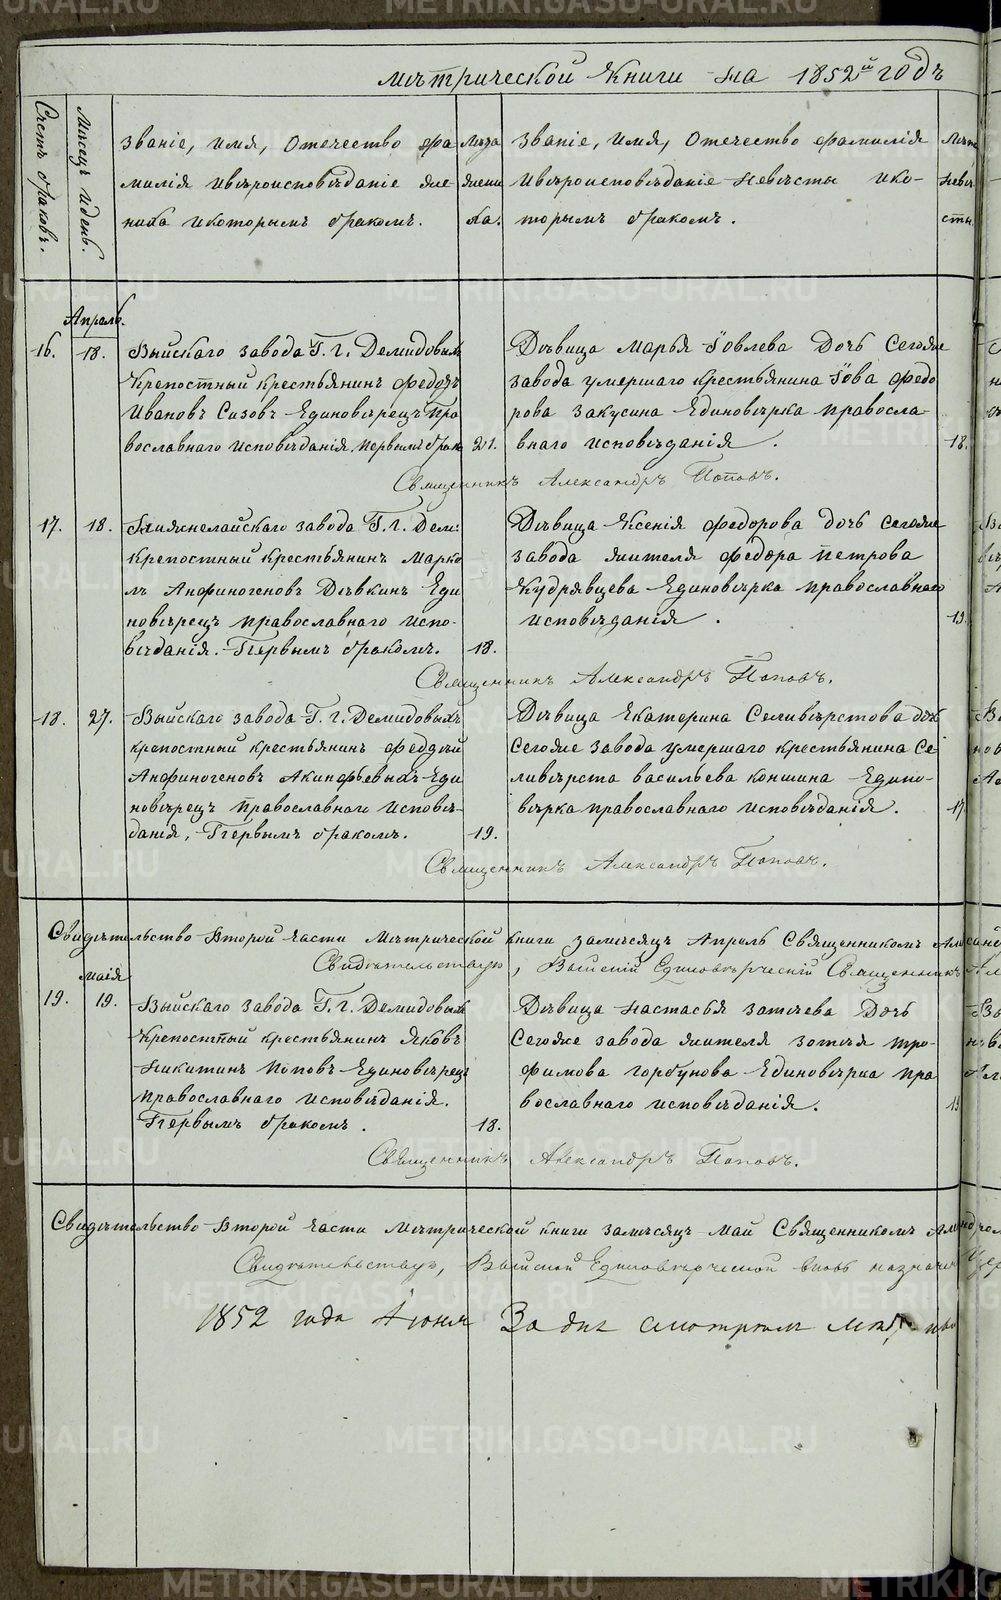 Мѣтрической Книги на 1852й годъ
Счетъ браковъ.
Мѣсяцъ и день.
Званіе, имя, Отечество фа
милія ивѣроисповѣданіе же
ниха икоторымъ бракомъ.
Лѣта
жени
ха.
Званіе, имя, Отечество фамилія
ивѣроисповѣданіе невѣсты ико-
торымъ бракомъ.
Лѣта
невѣ
сты
Апрель.
16. 18.
Выйскаго завода Г. г. Демидовыхъ
крепостный крестьянинъ Федоръ
Ивановъ Сизовъ Единовѣрецъ Пра
вославнаго исповѣданія, первымъ брако
21.
Дѣвица Марья Іовлева Дочь Сегоже
завода умершаго крестьянина Іова Федо
рова Закусина Единовѣрка правосла-
внаго исповѣданія.
18.
Священникъ Александръ Поповъ.
17. 18.
завода Г. г. Дем:
крепостный крестьянинъ Марко
мъ Анфиногеновъ Дѣвкинъ Еди
новѣрецъ православнаго испо-
вѣданія. Первымъ бракомъ.
18.
Дѣвица Ксенія Федорова дочь сегоже
завода жителя Федора Петрова
Кудрявцева Единовѣрка православнаго
исповѣданія.
19.
Священникъ Александръ Поповъ.
18. 27.
Выйскаго завода Г. г. Демидовыхъ
крепостный крестьянинъ
Анфиногеновъ Акинфьевыхъ Еди
новѣрецъ православнаго исповѣ-
данія, Первымъ бракомъ.
19.
Дѣвица Екатерина Селивѣрстова дочь
Сегоже завода умершаго крестьянина Се
ливѣрста Васильева Коншина Едино-
вѣрка православнаго исповѣданія.
17
Священникъ Александръ Поповъ.
Свидѣтельство Второй части Мѣтрической книги замѣсяцъ Апрель Священникомъ
Свидѣтельствую, Единовѣрческій Священникъ
маія
19. 19.
Выйскаго завода Г. г. Демидовыхъ
крепостный крестьянинъ Яковъ
Никитинъ Поповъ Единовѣрецъ
православнаго исповѣданія.
Первымъ бракомъ.
18.
Дѣвица Настасья Зотѣева Дочь
Сегоже завода жителя Зотѣя Тро-
фимова Горбунова Единовѣрка пра
вославнаго исповѣданія.
Священникъ Александръ Поповъ.
Свидѣтельство Второй части Мѣтрической книги замѣсяцъ Май Священникомъ
Свидѣтельствую, Выйской Единовѣрческой вновь назначен
1852 года Июня
METRIKI.GASO-URAL.RU